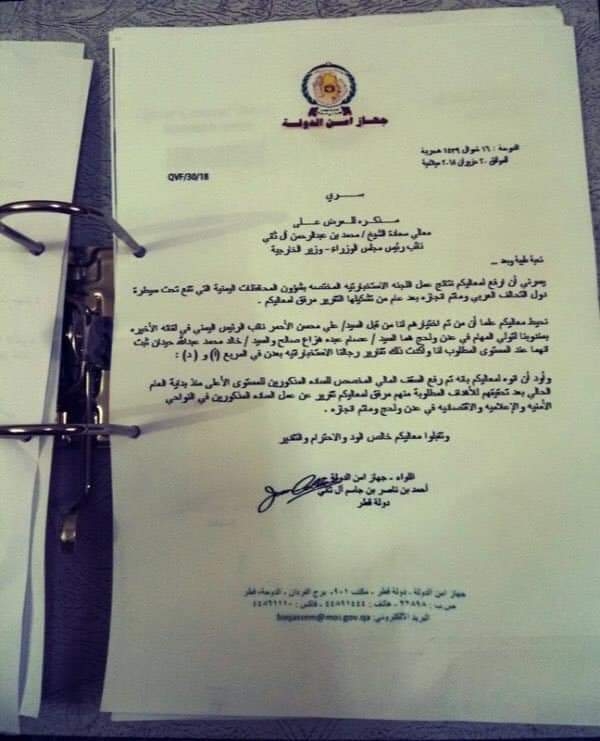 جهاز امن الدولة
الدوحة : ١٦ شوال ١٤٣٩ هجرية
الموافق ٢٠ حزيران ٢٠١٨ ميلادية
QVF/30/18
سري
مذكرة للعرض على
معالي سعادة الشيخ / محمد بن عبدالرحمن آل ثاني
نائب رئيس مجلس الوزراء - وزير الخارجية
تحية طيبة وبعد ..
يسرني أن ارفع لمعاليكم نتائج عمل اللجنه الاستخباراتيه المختصه بشؤون المحافظات اليمنية التي تقع تحت سيطرة
دول التحالف العربي وماتم انجازه بعد عام من تشكيلها التقرير مرفق لمعاليكم .
نحيط معاليكم علما أن من تم اختيارهم لنا من قبل السيد/ علي محسن الأحمر نائب الرئيس اليمني في لقائه الأخير
بمندوبنا لتولي المهام في عدن ولحج هما السيد / عصام عبده هزاع صالح والسيد / خالد محمد عبدالله حيدان ثبت
انهما عند المستوى المطلوب لنا وأكدت ذلك تقارير رجالنا الاستخباراتيه بعدن في المربع (أ) و ( د ) :
وأود أن انوه لمعاليكم بانه تم رفع السقف المالي المخصص للساده المذكورين للمستوى الأعلى منذ بداية العام
الحالي بعد تحقيقهم للأهداف المطلوبة منهم مرفق لمعاليكم تقرير عن عمل الساده المذكورين في النواحي
الأمنيه والإعلاميه والاقتصاديه في عدن ولحج وماتم انجازه .
وتقبلوا معاليكم خالص الود والاحترام والتقدير
اللواء - جهاز امن الدولة
أحمد بن ناصر بن جاسم آل ثاني
دولة قطر
جهاز امن الدولة - دولة قطر - مكتب ٩٠١ برج الفردان - الدوحة، قطر
ص.ب : - هاتف : - فاكس :
البريد الألكتروني: